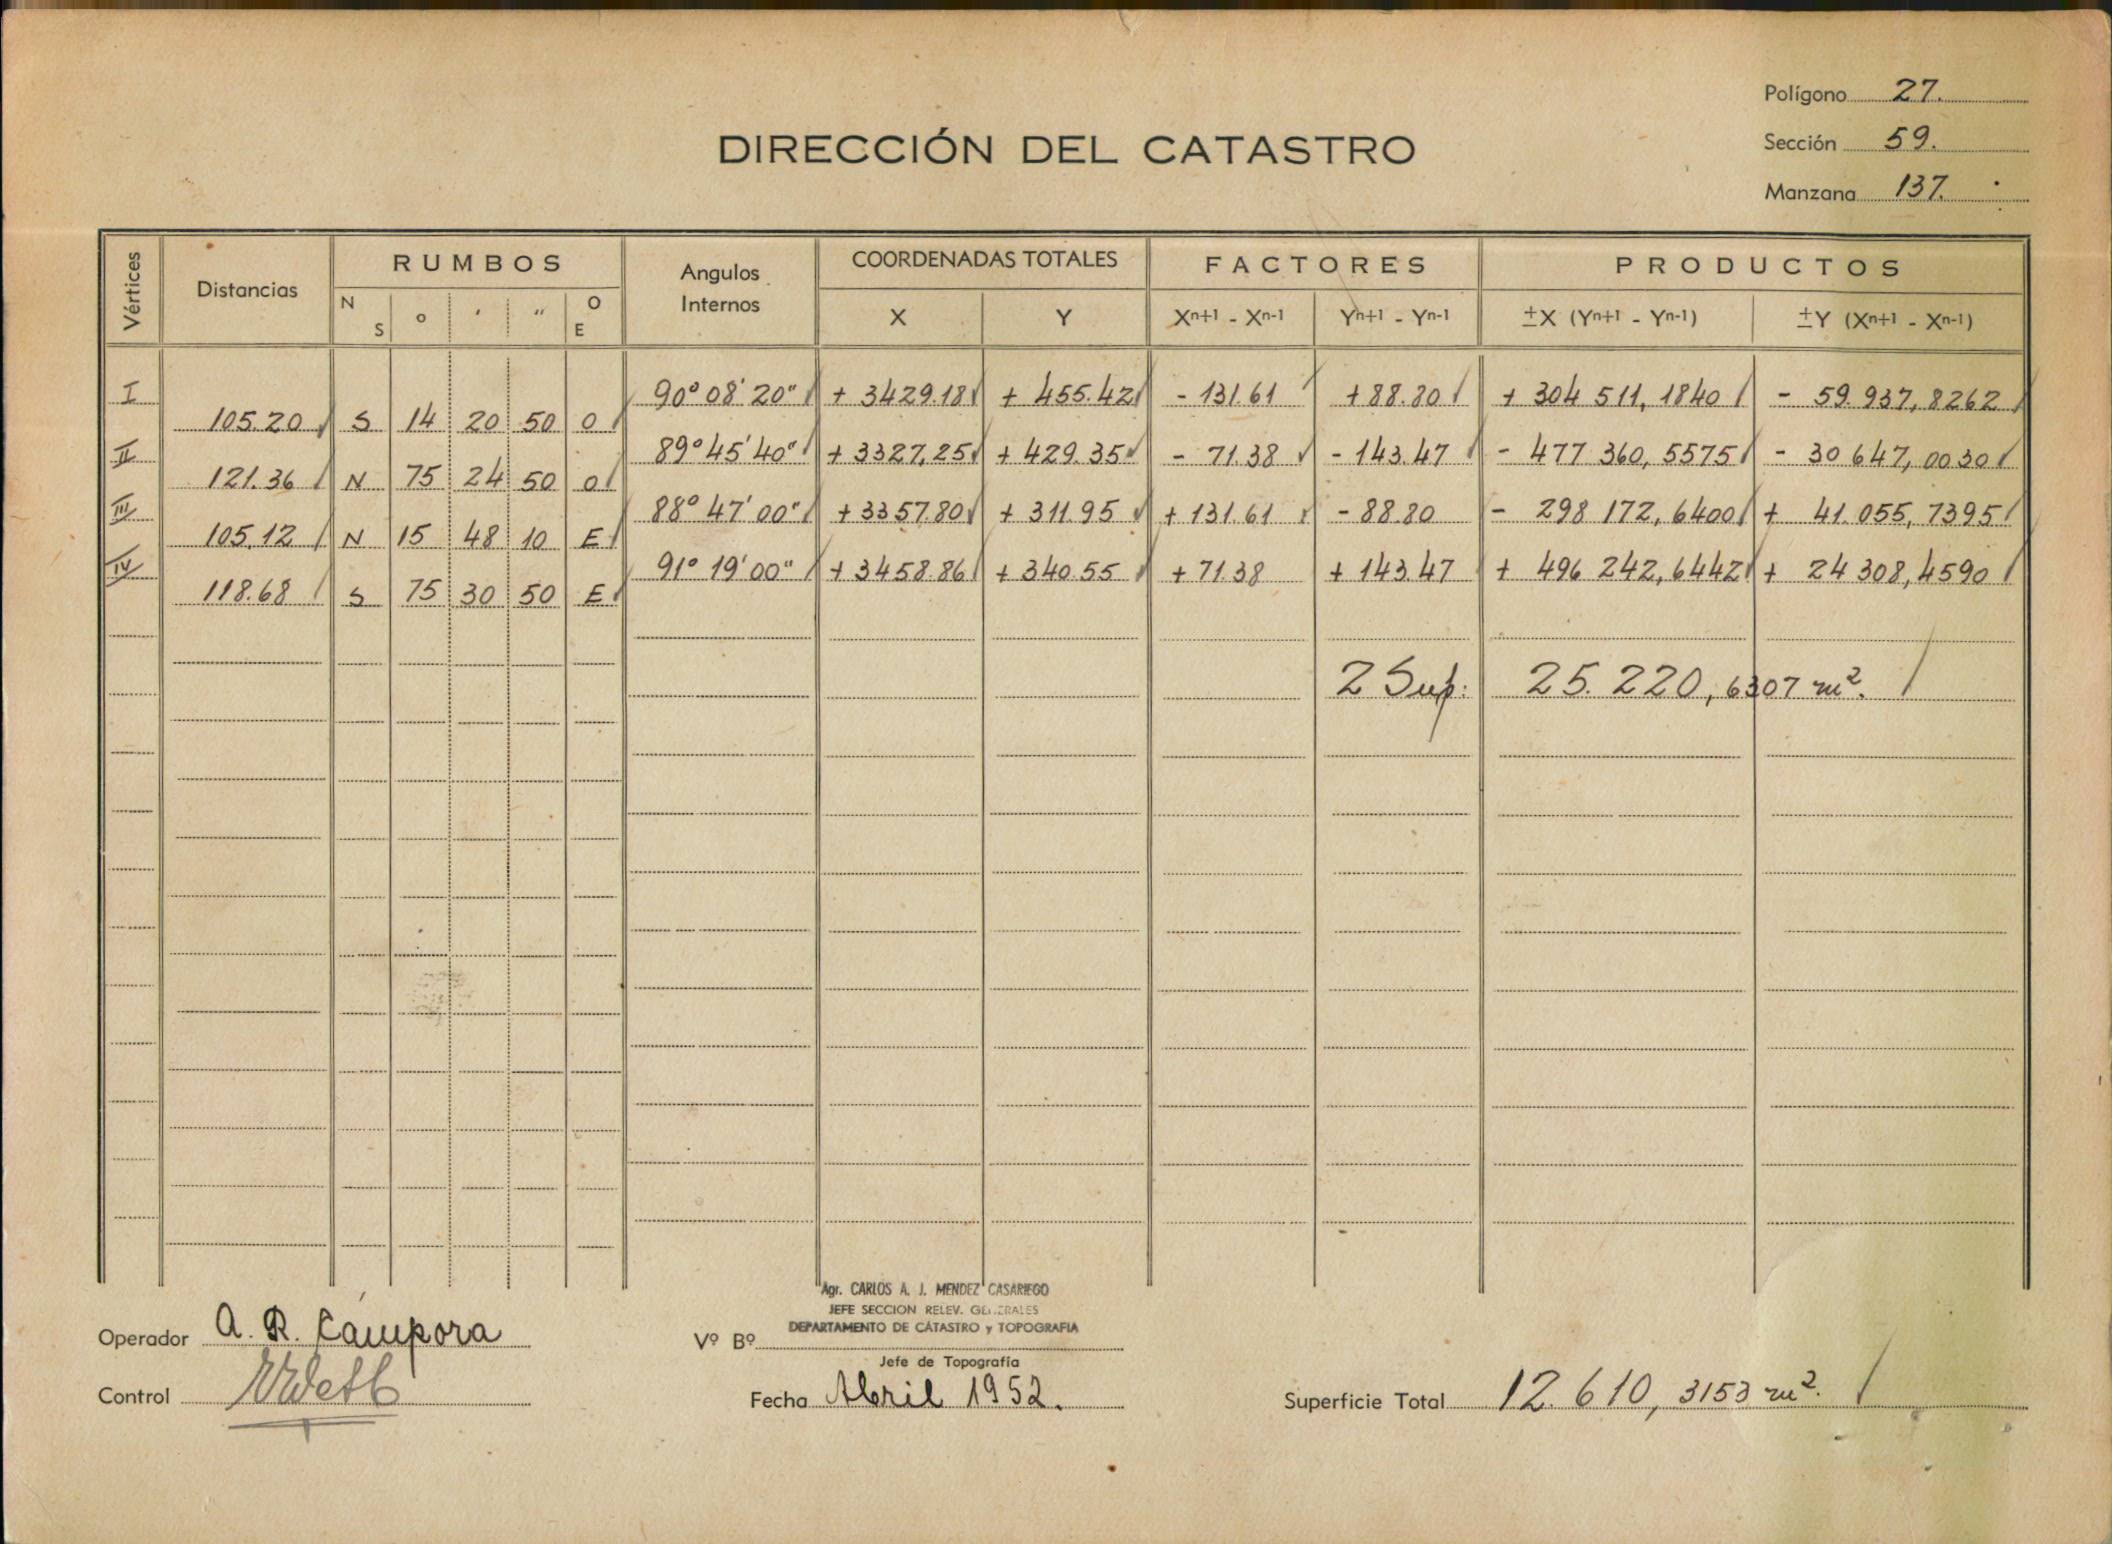 Polígono 27.
DIRECCIÓN DEL CATASTRO
Sección 59.
Manzana 137.
Vértices Distancias RUMBOS Angulos Internos COORDENADAS TOTALES FACTORES PRODUCTOS
N S o ′ ″ O E X Y Xn+1 - Xn-1 Yn+1 - Yn-1 ±X (Yn+1 - Yn-1) ±Y (Xn+1 - Xn-1)
I 90° 08' 20" + 3429.18 + 455.42 - 131.61 + 88.80 + 304 511, 1840 - 59.937, 8262
105.20 S 14 20 50 O
II 89° 45' 40" + 3327,25 + 429.35 - 71.38 - 143.47 - 477 360, 5575 - 30 647, 0030
121.36 N 75 24 50 O
III 88° 47' 00" + 3357.80 + 311.95 + 131.61 - 88.80 - 298 172, 6400 + 41.055, 7395
105.12 N 15 48 10 E
IV 91° 19' 00" + 3458.86 + 340.55 + 71.38 + 143.47 + 496 242, 6442 + 24 308, 4590
118.68 S 75 30 50 E
2 Sup: 25.220, 6307 m².
Agr. CARLOS A. J. MENDEZ CASARIEGO
JEFE SECCION RELEV. GENERALES
DEPARTAMENTO DE CATASTRO y TOPOGRAFIA
Operador A. R. Cámpora Vº Bº
Jefe de Topografía
Control
Fecha Abril 1952.
Superficie Total 12.610, 3153 m².